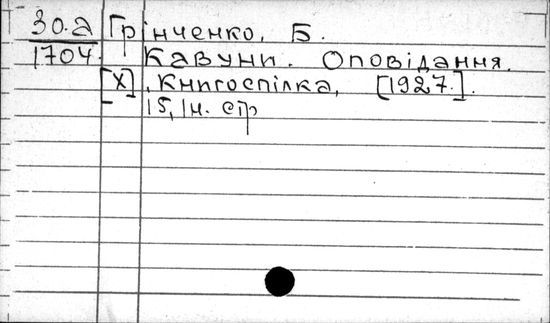 30.а Грінченко, Б.
1704. Кавуни. Оповідання.
[Х], Книгоспілка, [1927.].
15, 1н. стр